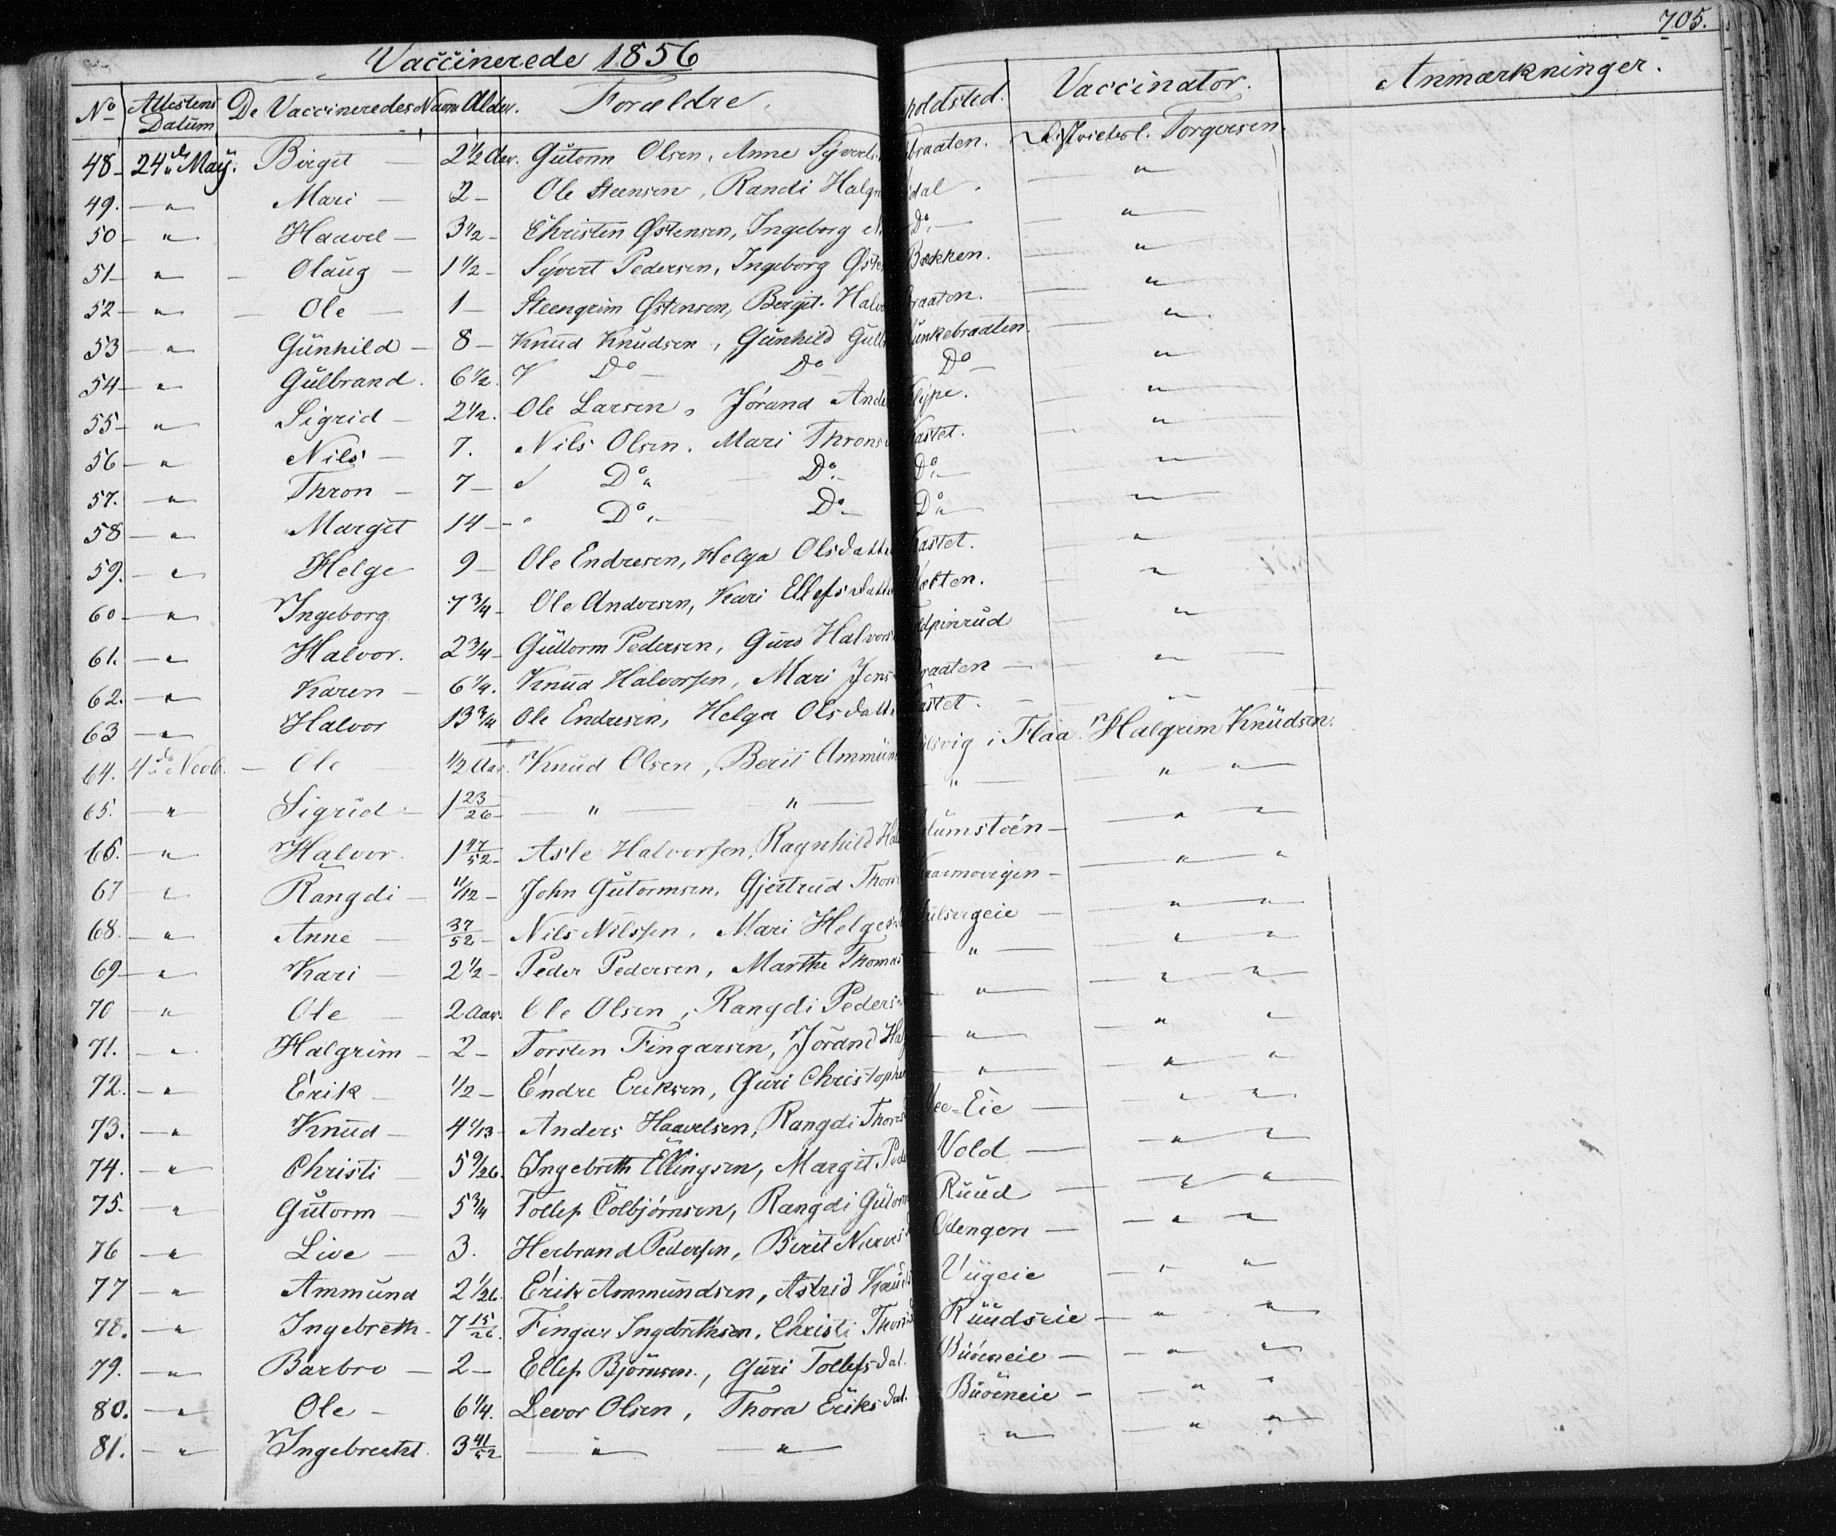 705.
Vaccinerede 1856
No Attestens Datum De Vaccineredes Navn Alder. Forældre. holdsted. Vaccinator. Anmærkninger.
48 24de May. Birgit 2 1/2 Aar. Gutorm Olsen, Anne Syverts braaten. Torgersen.
49. " Mari 2 Ole Steensen, Randi Halgr dal "
50 " Haavel 3 1/2 Christen Østensen, Ingeborg Do "
51 " Olaug 1 1/2 Syvert Pedersen, Ingeborg Østen Bækken. "
52 " Ole 1 Steengrim Østensen, Bergit Halvo braaten. "
53 " Gunhild 8 Knud Knudsen, Gunhild Gulb unkebraaten. "
54 " Gulbrand. 6 1/2. Do Do Do "
55 " Sigrid 2 1/2. Ole Larsen, Jørand Ande lype. "
56 " Nils 7. Nils Olsen. Mari Throns kastet. "
57. " Thron 7 Do Do Do "
58 " Margit 14 Do Do Do "
59. " Helge 9 Ole Endresen, Helga Olsdatte kastet. "
60 " Ingeborg 7 3/4 Ole Andersen, Kari Ellefsdatte "
61. " Halvor. 2 3/4 Guttorm Pedersen, Guro Halvors dpinrud "
62. " Karen 6 1/4. Knud Halvorsen, Mari Jens braaten "
63 " Halvor 13 3/4 Ole Endresen, Helga Olsdatt kastet. "
64. 4de Novb. Ole 1/2 Aar. Knud Olsen, Berit Ammun lsvig i Flaa. Halgrim Knudsen.
65. " Sigrid 1 23/26 " " " " "
66. " Halvor. 1 47/52 Asle Halvorsen, Ragnhild Ha lumstøen " "
67 " Rangdi 11/12 John Gutormsen, Gjertrud Thors " "
68. " Anne 37/52 Nils Nilssen, Mari Helges ulsvigeie " "
69 " Kari 2 1/2 Peder Pedersen, Marthe Thomas " " "
70 " Ole 2 Aar. Ole Olsen, Rangdi Peders " " "
71. " Halgrim 2 Torsten Fingarsen, Jørand Ha " " "
72. " Erik 1/2 Endre Eriksen, Guri Christophe " " "
73. " Knud 4 1/13 Anders Haavelsen, Rangdi Thores Eie " "
74. " Christi 5 9/26. Ingebreth Ellingsen, Margit Ped Vold " "
75. " Gutorm 5 3/4 Tollef Colbjørnsen, Rangdi Gutorm Ruud " "
76 " Live 3. Herbrand Pedersen, Berit Narves Ødengen " "
77 " Ammund 2 1/26. Erik Ammundsen, Astrid Knuds " "
78. " Ingebreth. 7 15/26 Fingar Ingebrethsen, Christi Thoris Ruudseie " "
79. " Barbro 2 Ellef Bjørnsen., Guri Tollefsdat. Buøeneie " "
80. " Ole 6 1/4. Levor Olsen, Thora Eriksdat. Buøeneie " "
81. " Ingebrecht. 3 41/52 " " " " "